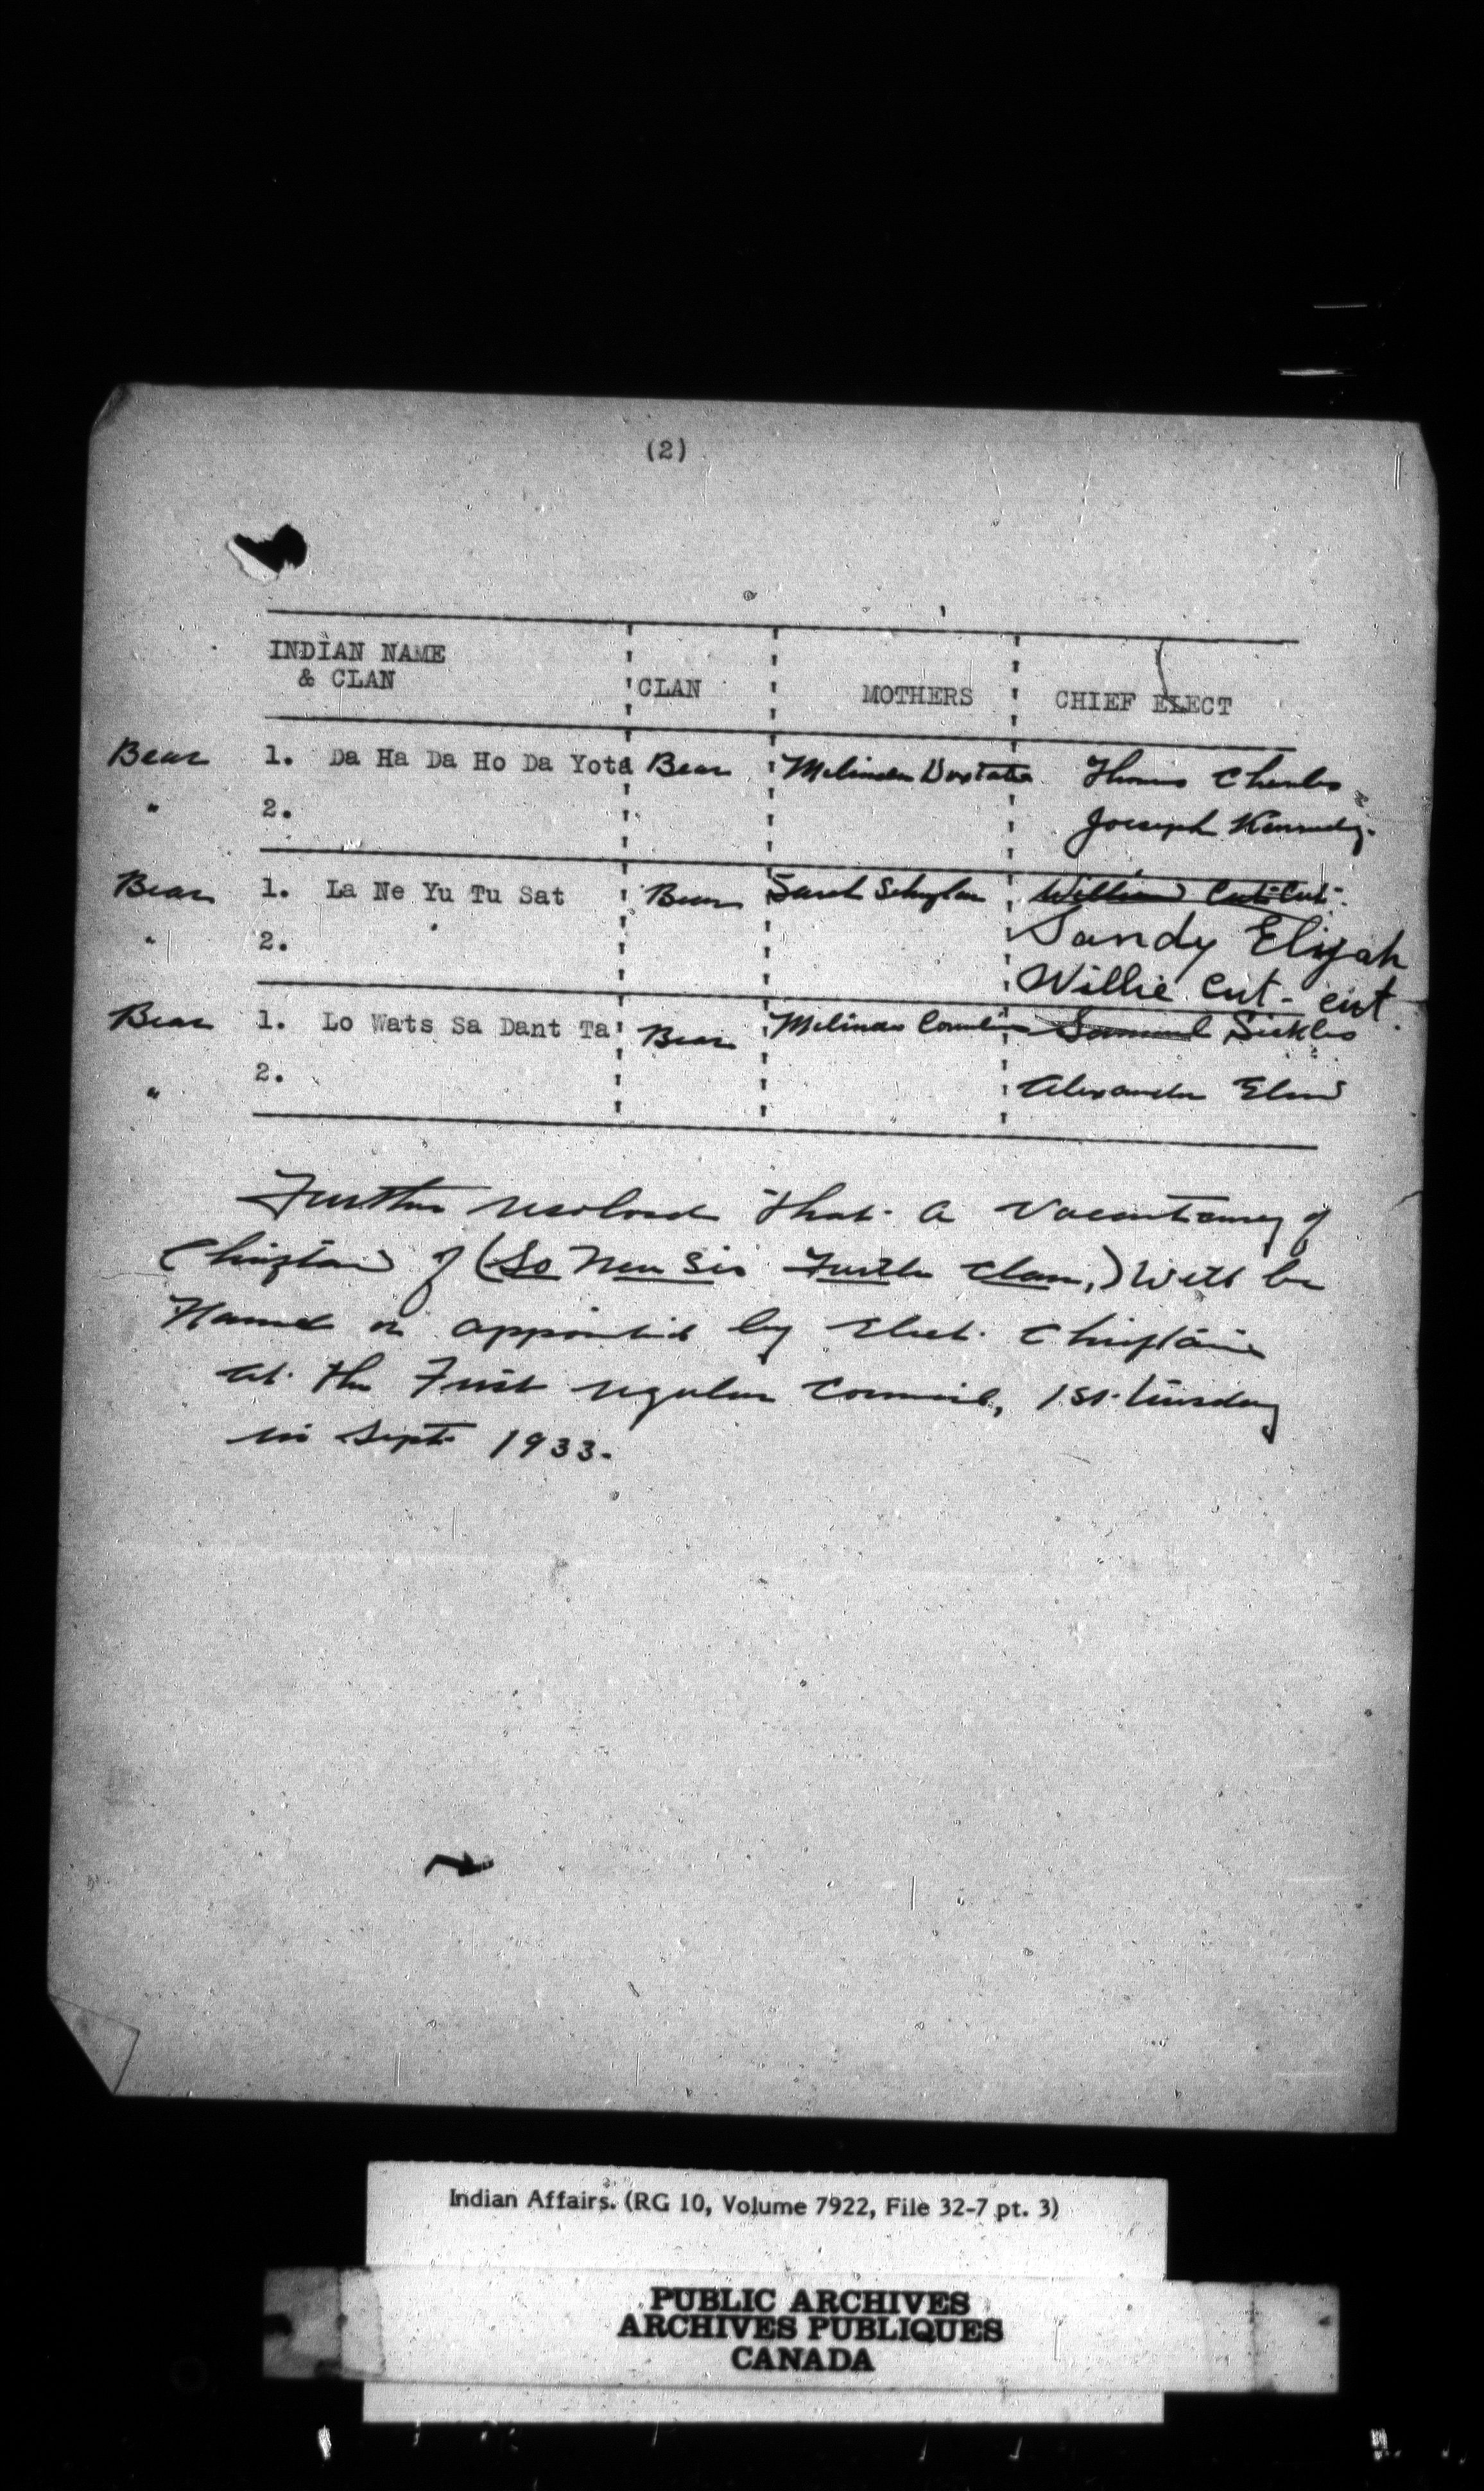 (2)
INDIAN NAME
& CLAN CLAN MOTHERS CHIEF ELECT
Bear 1. Da Ha Da Ho Da Yota Bear Melinda Doxtator Thomas Charles
" 2. Joeseph Kennedy.
Bear 1. La Ne Yu Tu Sat Bear Sarah Schuyler William Cut-Cut-
" 2. Sandy Elijah
Willie Cut-cut.
Bear 1. Lo Wats Sa Dant Ta Bear Melinda Cornelius Samuel Sickles
" 2. Alexander Elm
Further resolved that a Vacantancy of
Chieftan of (So Nen Sis Turtle Clan,) Will be
Named or appointed by Elect. Chieftains
at the First regular Council, 1st. tuesday
in Sept 1933.
Indian Affairs. (RG 10, Volume 7922, File 32-7 pt. 3)
PUBLIC ARCHIVES
ARCHIVES PUBLIQUES
CANADA